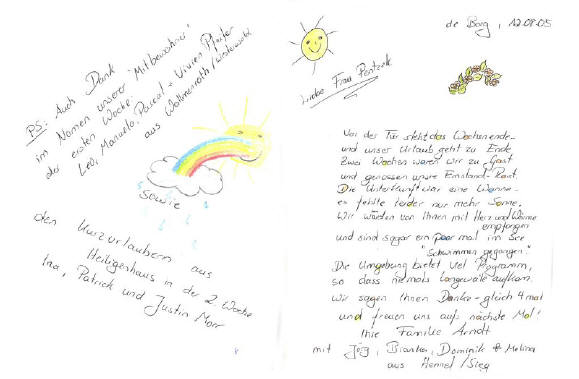 PS: Auch Dank
im Namen unserer "Mitbewohner"
der ersten Woche:
Leo, Manuela, Pascal + Vivien Pfeifer
aus Wallmenroth / Westerwald
sowie
den Kurzurlaubern aus
Heiligenhaus in der 2. Woche
Ina, Patrick und Justin Morr
de Borg, 12.08.05
Liebe Frau
Vor der Tür steht das Wochenende
und unser Urlaub geht zu Ende
Zwei Wochen waren wir zu Gast
und genossen unsere Emsland-Rast.
Die Unterkunft war eine Wonne -
es fehlte leider nur mehr Sonne.
Wir wurden von Ihnen mit Herz und Wärme
empfangen
und sind sogar ein paar mal im See
"Schwimmen gegangen".
Die Umgebung bietet viel Programm,
so dass niemals Langeweile aufkam.
Wir sagen Ihnen Danke - gleich 4 mal
und freuen uns aufs nächste Mal!
Ihre Familie Arndt
mit Jörg, Bianka, Dominik + Melina
aus Hennef / Sieg